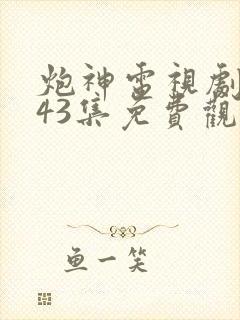 炮神雷視劇
43集免費觀
鱼一笑